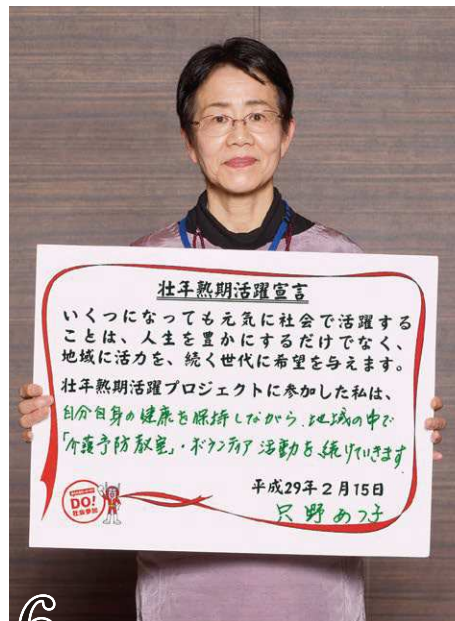 壮年熟期活躍宣言
いくつになっても元気に社会で活躍する
ことは、人生を豊かにするだけでなく、
地域に活力を、続く世代に希望を与えます。
壮年熟期活躍プロジェクトに参加した私は、
自分自身の健康を保持しながら、地域の中で
「介護予防教室」・ボランティア活動を続けていきます
平成29年2月15日
只野あつ子
DO!
社会参加
6